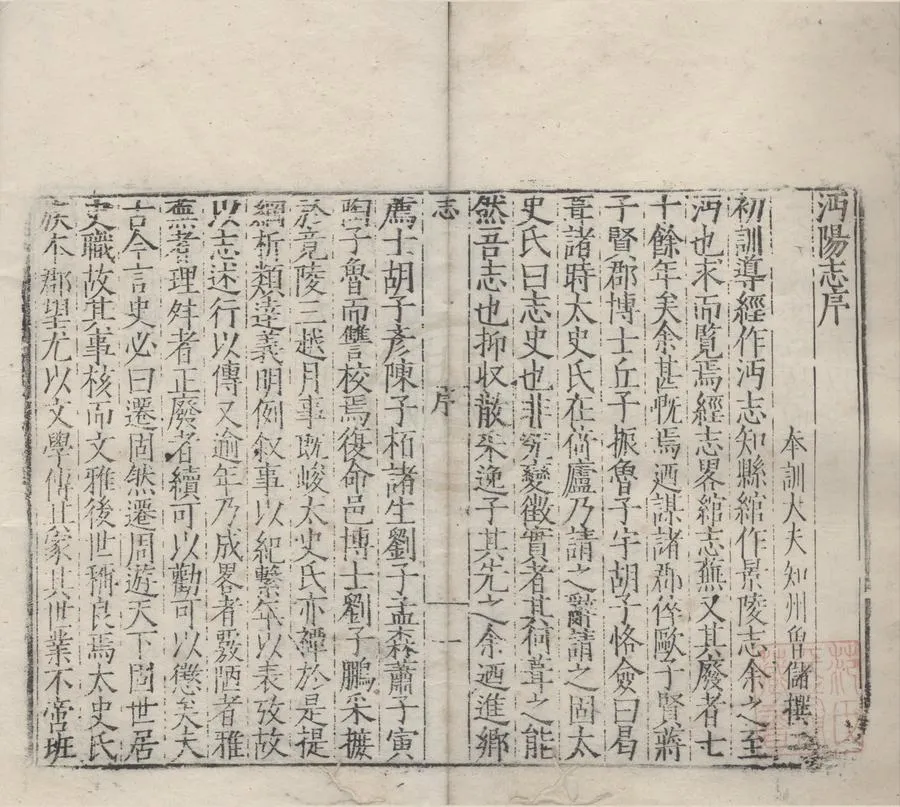 沔陽志序
奉訓大夫知州魯儲撰
初訓導經作沔志知縣綰作景陵志余之至
沔也求而覽焉經志畧綰志蕪又其廢者七
十餘年矣余甚慨焉迺謀諸郡倅歐子賢蔣
子賢郡博士丘子振魯子宇胡子恪僉曰曷
葺諸時太史氏在倚廬乃請之辭請之固太
史氏曰志史也非窮變徵實者其何葺之能
然吾志也抑收散采逸子其先之余迺進鄉
志 序 一
薦士胡子彥陳子栢諸生劉子孟森蕭子寅
陶子魯而讐校焉復命邑博士劉子鵬采摭
於竟陵三越月事既峻太史氏亦禫於是提
綱析類達義明例叙事以紀繫年以表攷故
以志述行以傳又逾年乃成畧者覈陋者雅
蕪者理舛者正廢者續可以勸可以懲矣夫
古今言史必曰遷固然遷周遊天下固世居
史職故其事核而文雅後世稱良焉太史氏
族本郡望尤以文學傳其家其世業不啻班